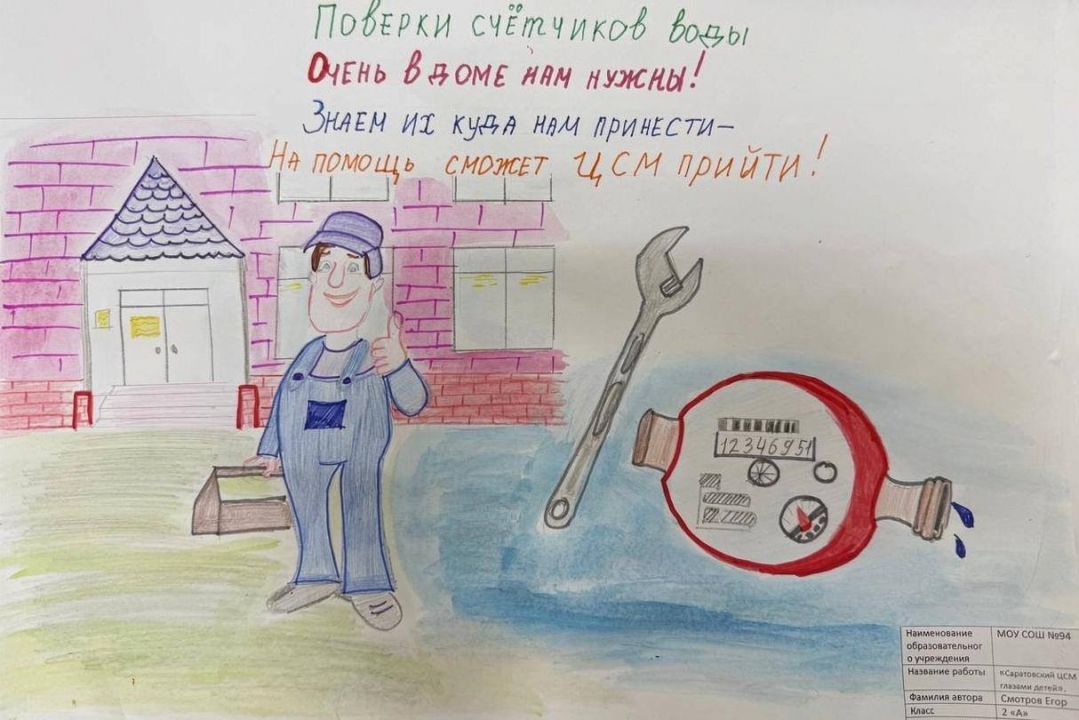 Поверки счётчиков воды
Очень в доме нам нужны!
Знаем их куда нам принести–
На помощь сможет ЦСМ прийти!
12346951
Наименование образовательног о учреждения
МОУ СОШ №94
Название работы
«Саратовский ЦСМ глазами детей»,
Фамилия автора
Смотров Егор
Класс
2 «А»